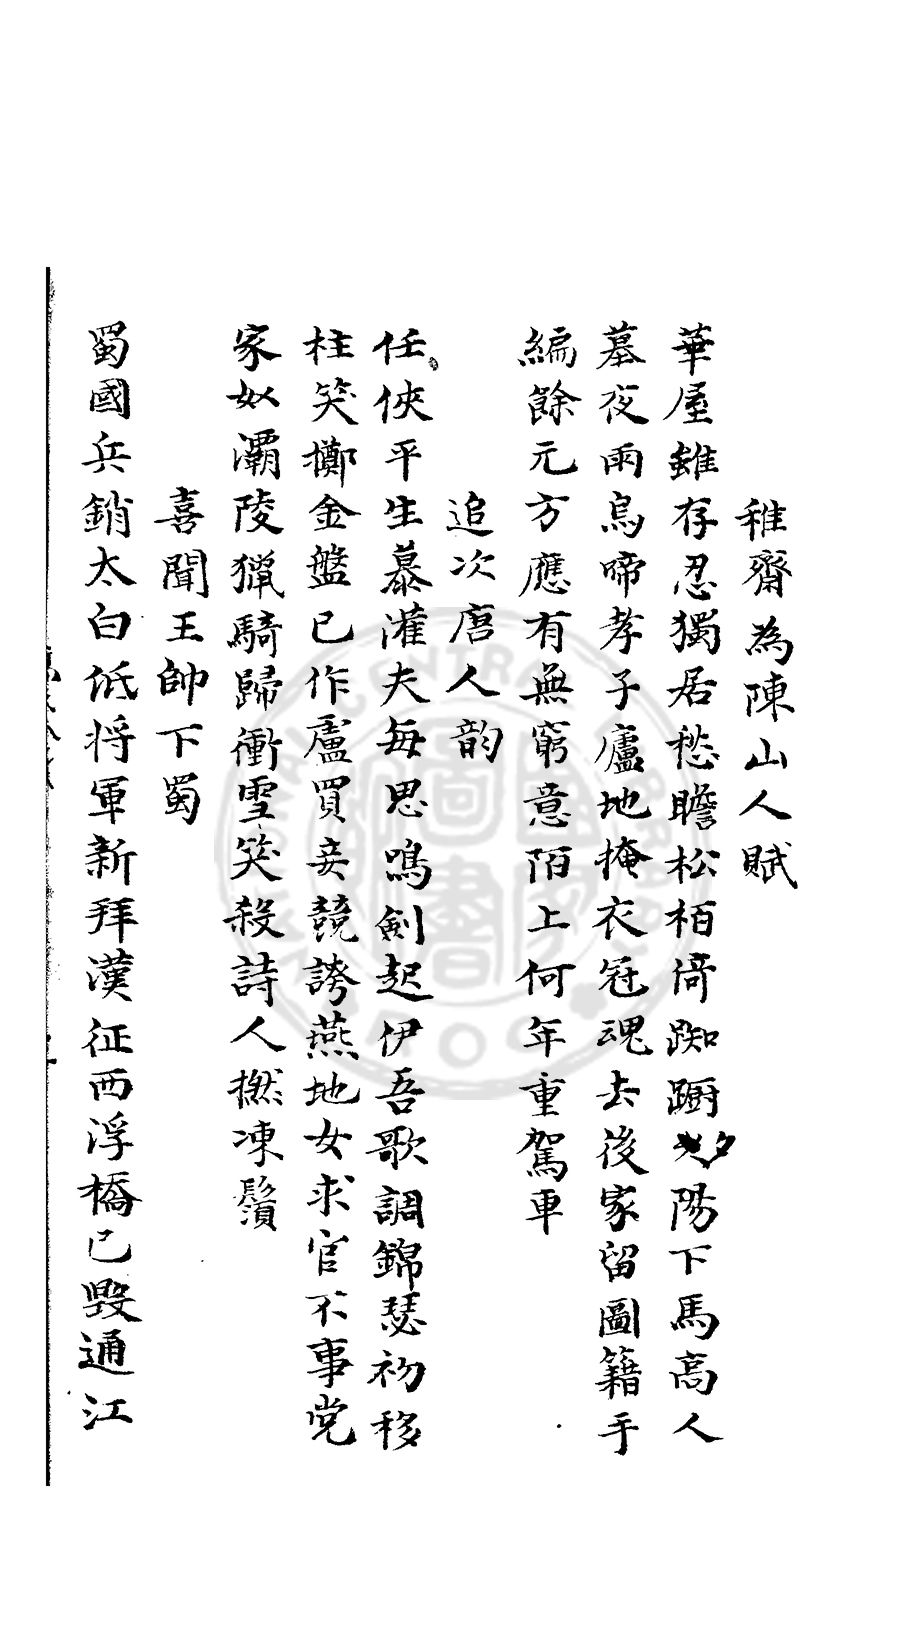 稚齋為陳山人賦
華屋雖存忍獨居愁瞻松栢倚踟蹰夕陽下馬高人
墓夜雨烏啼孝子廬地掩衣冠魂去後家留圖籍手
編餘元方應有無窮意陌上何年重駕車
追次唐人韵
任俠平生慕灌夫每思鳴劍起伊吾歌調錦瑟初移
柱笑擲金盤已作盧買妾競誇燕地女求官不事党
家奴灞陵獵騎歸衝雪笑殺詩人撚凍鬚
喜聞王帥下蜀
蜀國兵銷太白低将軍新拜漢征西浮橋已毀通江